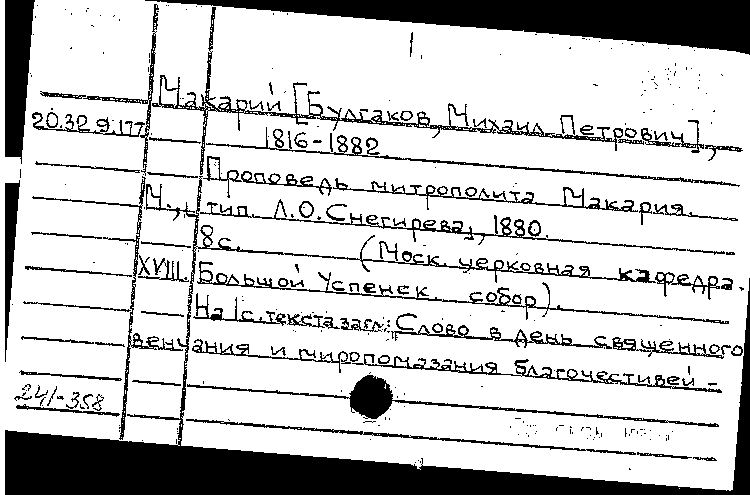 1.
Макарий [Булгаков, Михаил Петрович],
20.32.9.177
1816-1882
Проповедь митрополита Макария.
М., тип. Л.О. Снегирева, 1880.
8с. (Моск. церковная кафедра.
XVIII. Большой Успенск. собор).
На 1с. текста загл.: Слово в день священного
венчания и миропомазания благочестивей-
241-358